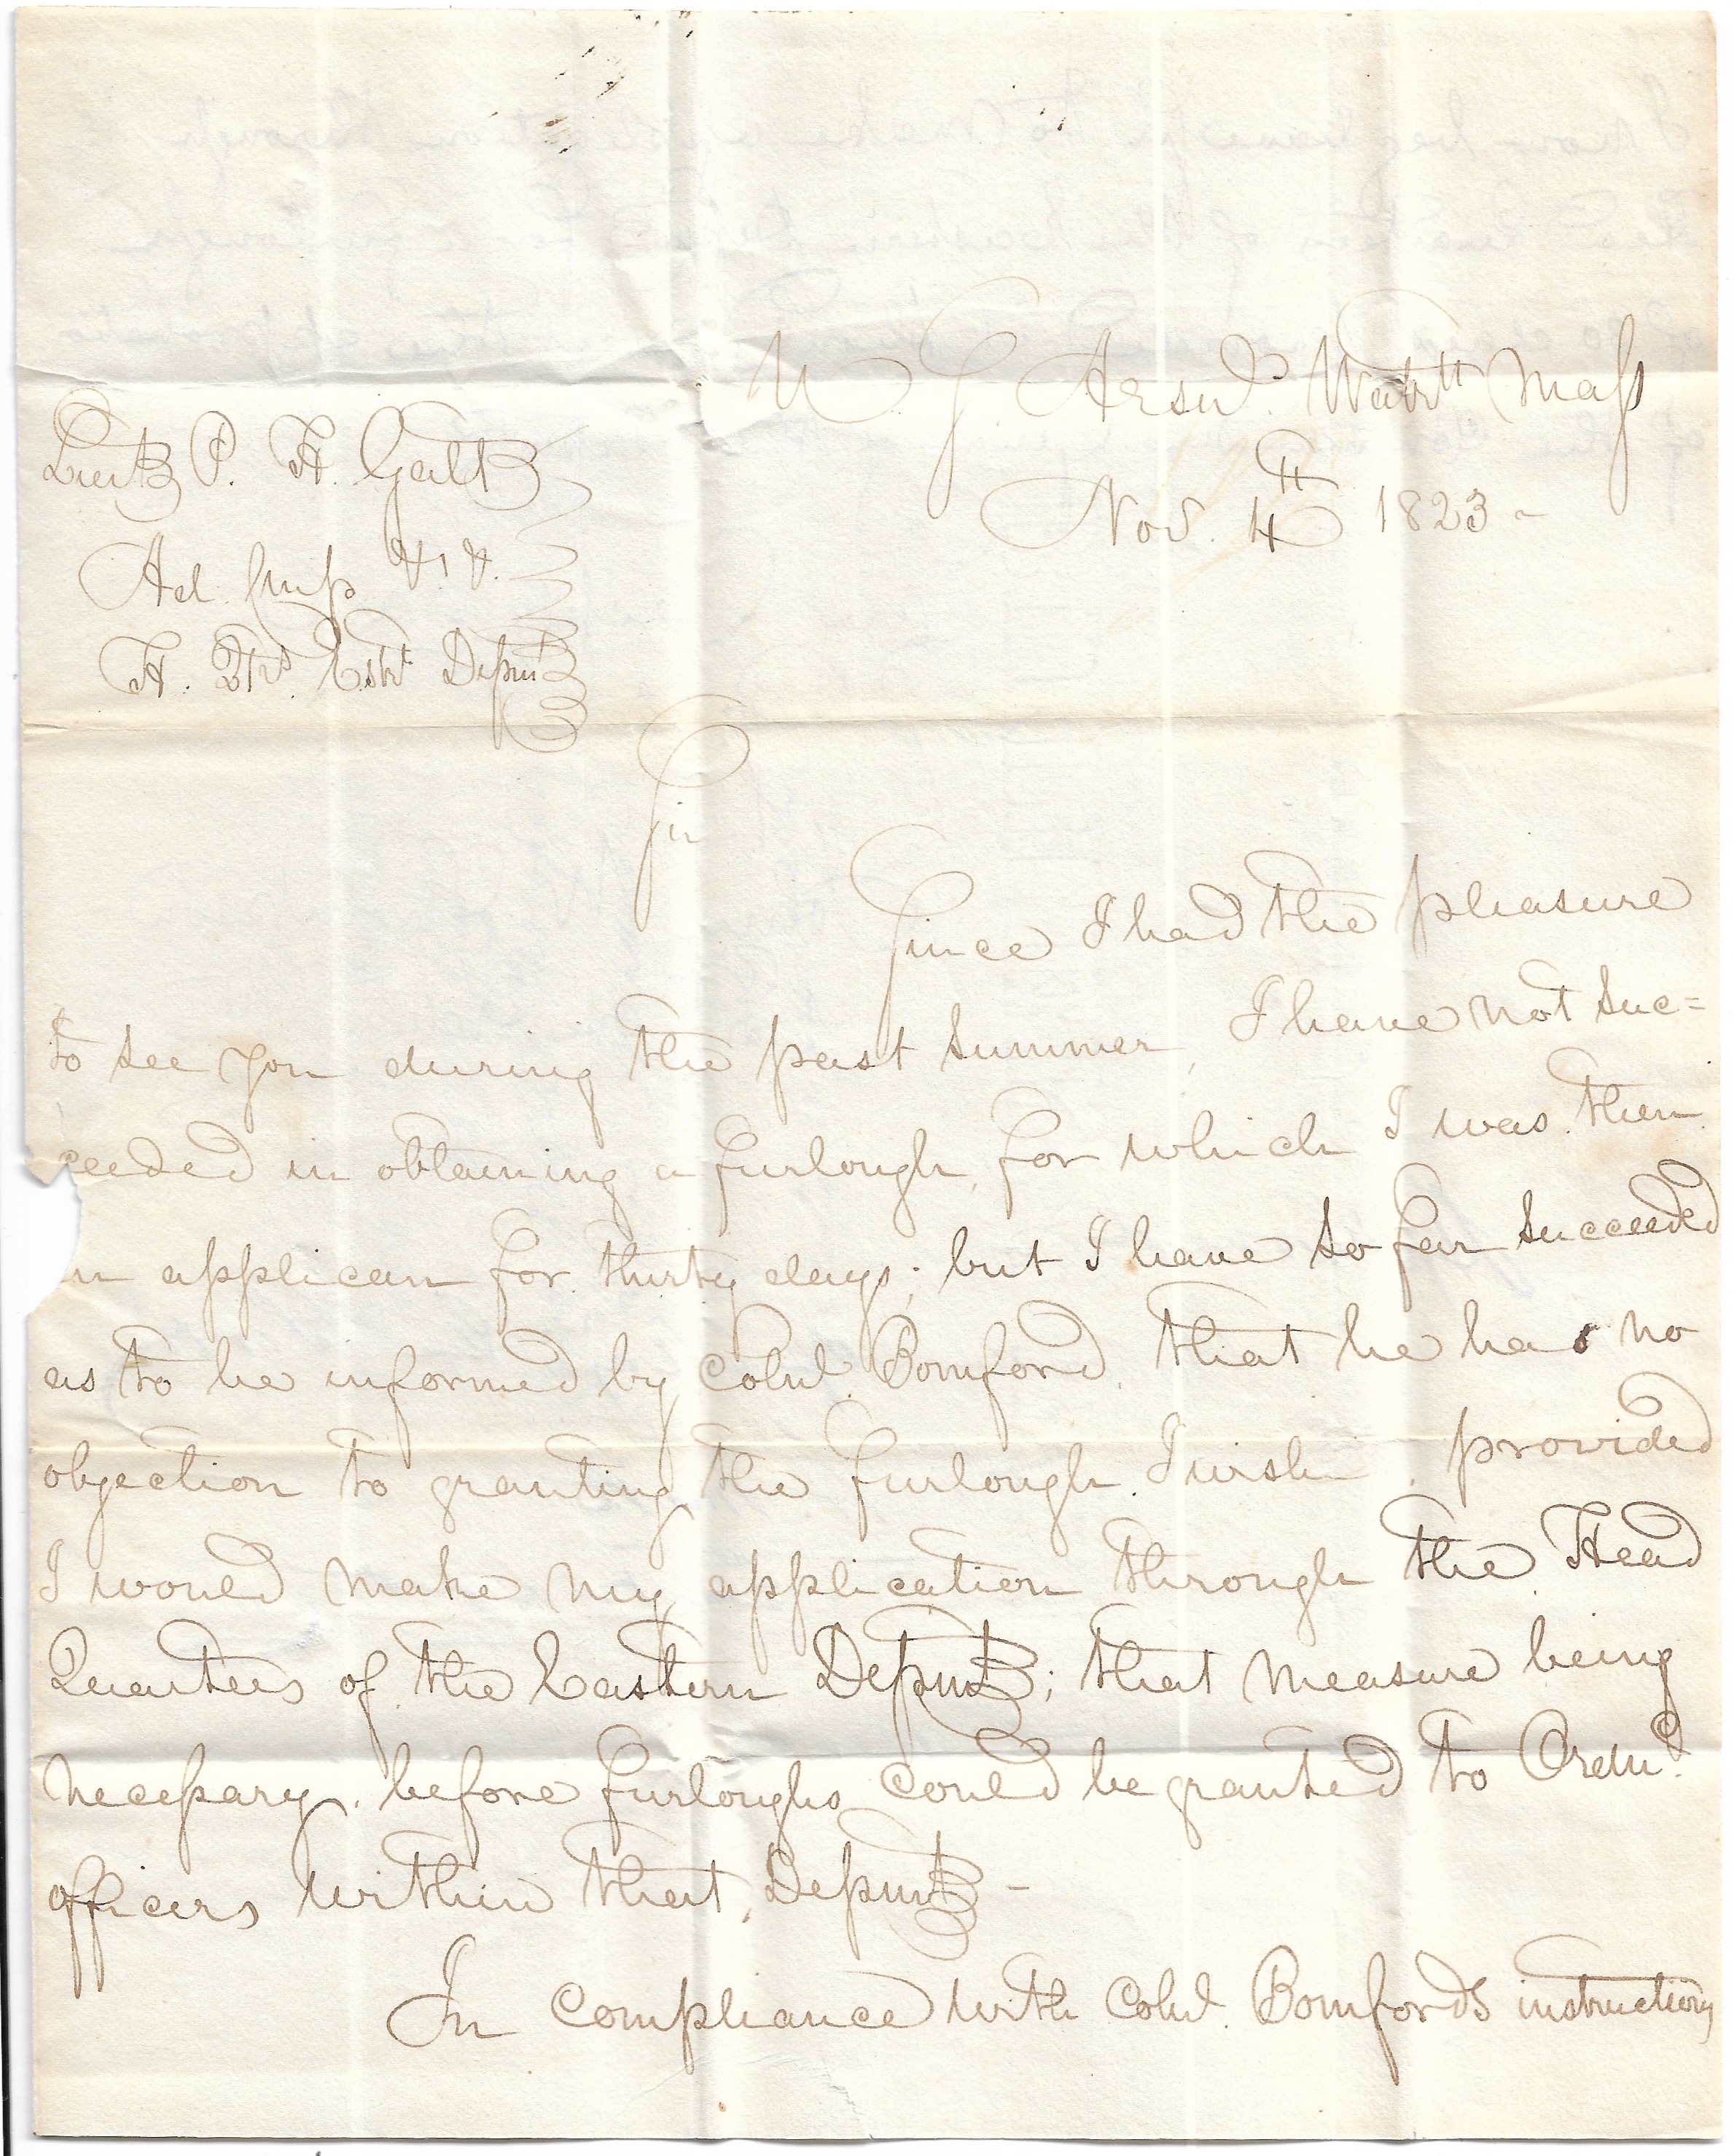 U S Arsnl. Watrtn Mass
Nov. 4th 1823 -
Lieut P. H. Galt
Ad. Camp &. &.
H. Qrs. Estn Depmt
Sir
Since I had the pleasure
to see you during the past Summer, I have not suc=
ceeded in obtaining a furlough, for which I was then
an applican for thirty days; but I have so far succeeded
as to be informed by Colnl. Bomford, that he has no
objection to granting the furlough I wish, provided
I would make my application through the Head
Quarters of the Eastern Depmt; that measure being
necessary, before furloughs could be granted to Ordn.
officers within that Depmt -
In compliance with Colnl. Bomford's instructions